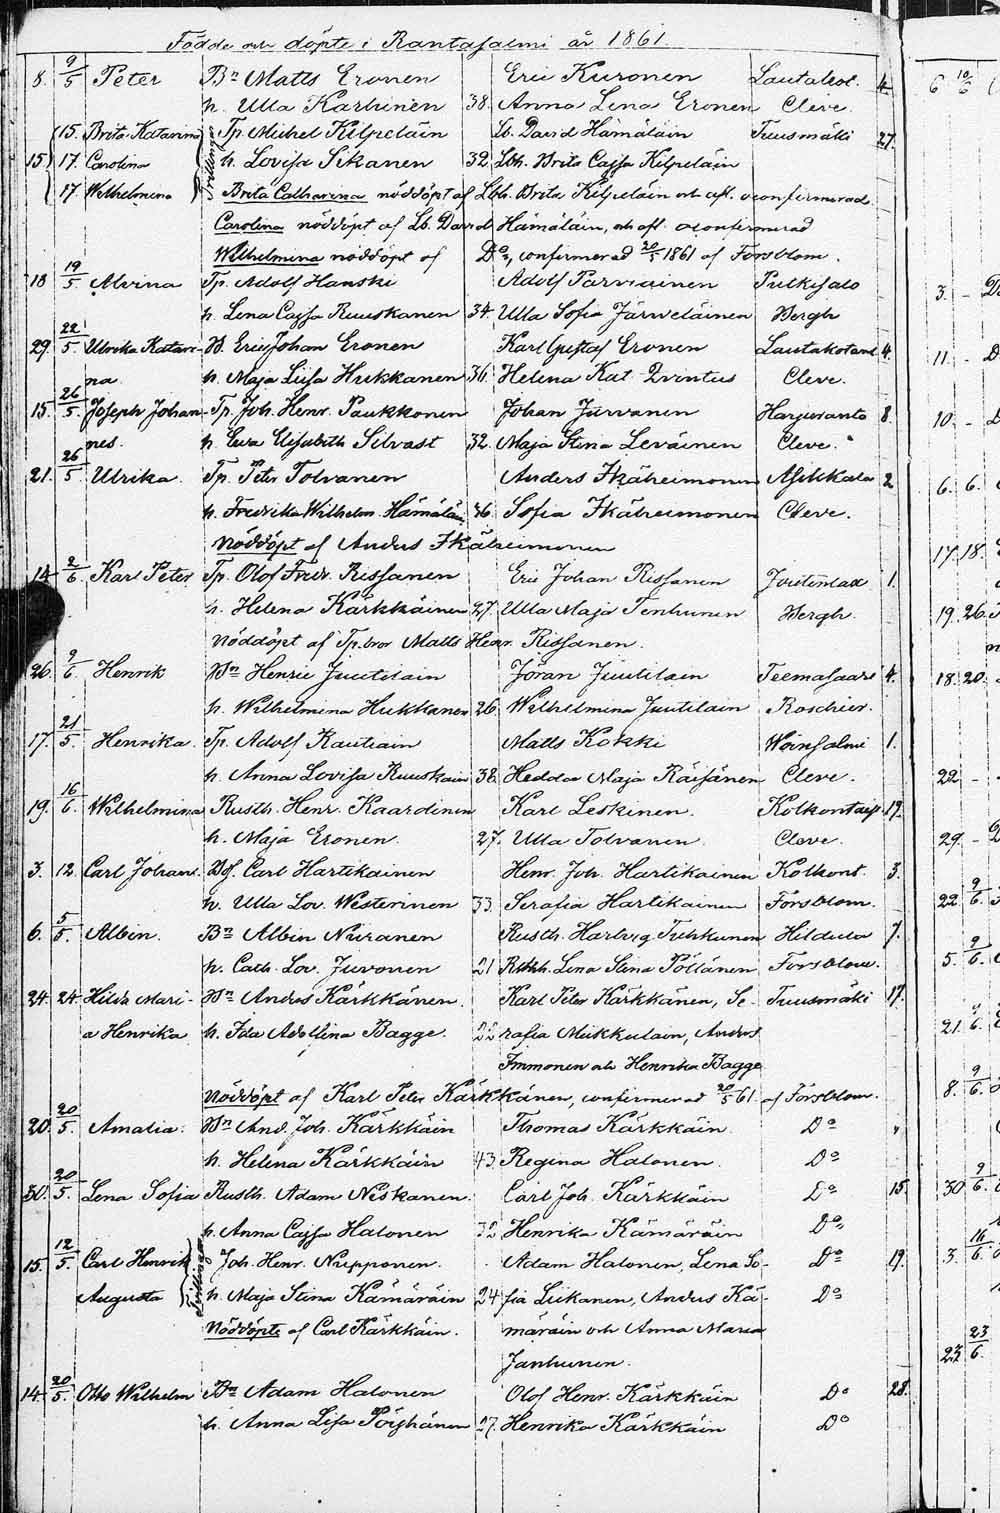 Födde och döpte i Rantasalmi år 1861.
8. 9/5 Peter Bn Matts Eronen Eric Kuronen Lautakot. 4
h. Ulla Karhinen 38. Anna Lena Eronen Cleve.
15. Brita Katarina Tp. Michel Kilpeläin Lb. David Hämäläin Tuusmäki 27.
15 17. Carolina h. Lovisa Sikanen 32 Lbh. Brita Cajsa Kilpeläin
17. Wilhelmina Trillingar Brita Catharina nöddöpt af Lbh. Brita Kilpeläin och aft. oconfirmerad
Carolina nöddöpt af Lb. David Hämäläin, och aft. oconfirmerad
Wilhelmina nöddöpt af Do, confirmerad 20/5 1861 af Forsblom.
18 19/5 Alvina Tp. Adolf Hanski Adolf Parviainen Putkisalo
h. Lena Cajsa Ruuskanen 34. Ulla Sofia Järveläinen Bergh
29. 22/5 Ulrika Katari- Bn Eric Johan Eronen Karl Gustaf Eronen Lautakotan 4.
na. h. Maja Liisa Hukkanen 36. Helena Kat. Qvintus Cleve.
15. 26/5 Joseph Johan- Tp. Joh. Henr. Paukkonen Johan Jurvanen Harjuranta 8
nes. h. Eva Elisabeth Silvast 32. Maja Stina Leväinen Cleve.
21. 26/5 Ulrika Tp. Peter Tolvanen Anders Ikäheimonen Asikkala 2
h. Fredrika Wilhelm. Hämäläin 46. Sofia Ikäheimonen Cleve.
Nöddöpt af Anders Ikäheimonen
14 2/6 Karl Peter Tp. Olof Fredr. Rissanen Eric Johan Rissanen 1.
h. Helena Kärkkäinen 27. Ulla Maja Tenhunen Bergh.
Nöddöpt af Tp.bror Matts Henr. Rissanen.
26. 9/6 Henrik Bn Henric Juutilain Jöran Juutilain Teemasaari 4.
h. Wilhelmina Hukkanen 26. Wilhelmina Juutilain Roschier.
17. 21/5 Henrika. Tp. Adolf Rautiain Matts Kokki Woinsalmi 1.
h. Anna Lovisa Ruuskain 38. Hedda Maja Räisänen Cleve.
19. 16/6 Wilhelmina Rusth. Henr. Kaardinen Karl Leskinen. 19.
h. Maja Eronen. 27. Ulla Tolvanen Cleve.
3. 12. Carl Johans. Carl Hartikainen Henr. Joh. Hartikainen Kolkont. 3.
h. Ulla Lov. Westerinen 33 Serafia Hartikainen Forsblom.
6. 5/5 Albin. Bn Albin Nuranen Rusth. Hartvig Tuhkunen Hildula 7.
h. Cath. Lov. Juvonen 21 Rsthh. Lena Stina Pöllänen Forsblom.
24. 24. Hilda Mari- Bn Anders Kärkkänen. Karl Peter Kärkkänen, Se- Tuusmäki 17.
a Henrika h. Ida Adolfina Bagge. 22 rafia Mukkulain, Anders
Immonen och Henrika Bagge
Nöddöpt af Karl Peter Kärkkänen, confirmerad 20/5 61. af Forsblom.
20. 20/5 Amalia. Bn And. Joh. Kärkkäin Thomas Kärkkäin Do "
h. Helena Kärkkäin 43. Regina Halonen. Do
30. 20/5 Lena Sofia Rusth. Adam Niskanen. Carl Joh. Kärkkäin Do 15.
h. Anna Cajsa Halonen 32 Henrika Kämäräin Do
15. 12/5 Carl Henrik Joh. Henr. Nupponen. Adam Halonen, Lena So- Do 19.
Augusta Tvillingar h. Maja Stina Kämäräin 24 fia Liikanen, Anders Kä- Do
Nöddöpte af Carl Kärkkäin. märäin och Anna Maria
Janhunen.
14. 20/5 Otto Wilhelm Bn Adam Halonen Olof Henr. Kärkkäin Do 28.
h. Anna Lisa Pöyhänen 27. Henrika Kärkkäin Do